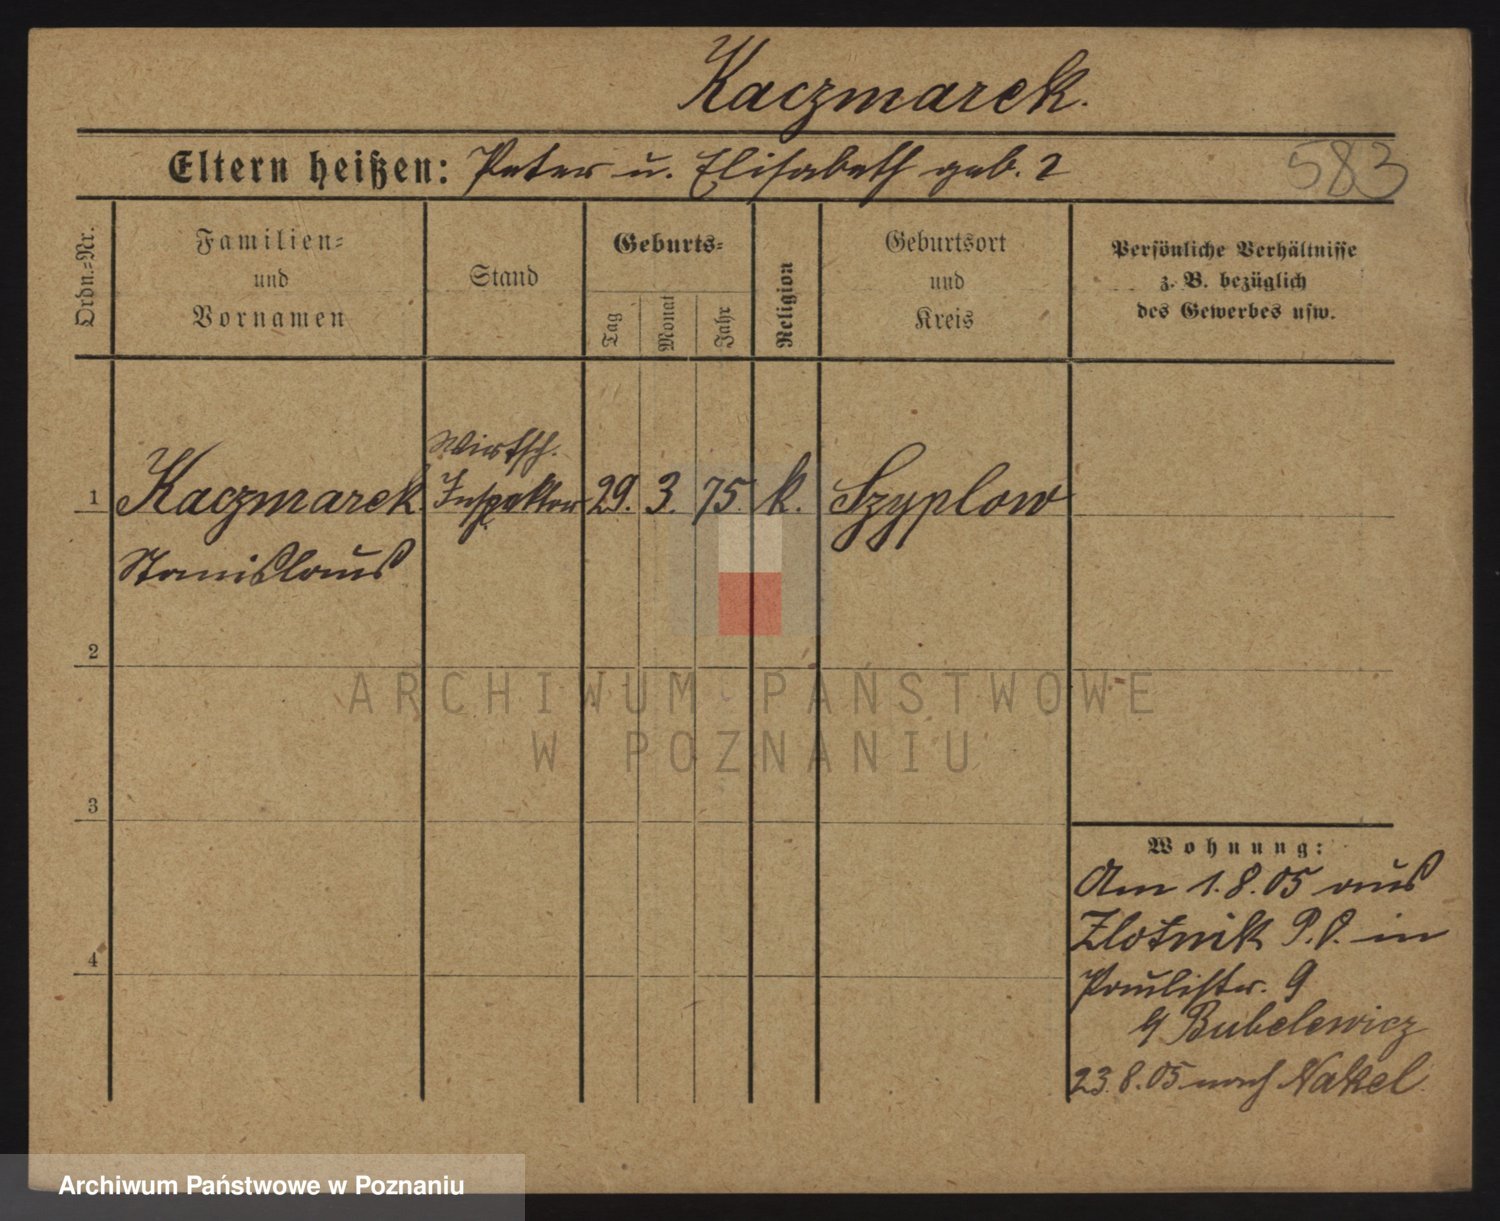 Kaczmarek.
Eltern heißen: Peter u. Elisabeth geb. ?
583
Ordn.=Nr.
Familien=
und
Vornamen
Stand
Geburts=
Tag
Monat
Jahr
Religion
Geburtsort
und
Kreis
Persönliche Verhältnisse
z. B. bezüglich
des Gewerbes usw.
Wirtsch.
1 Kaczmarek Inspektor 29. 3. 75. k. Szyplow
Stanislaus
2
ARCHIWUM PAŃSTWOWE
W POZNANIU
3
Wohnung:
Am 1.8.05 aus
Zlotnik P.O. in
4
Paulistr. 9
b/ Bubelewicz
23.8.05 nach Nakel.
Archiwum Państwowe w Poznaniu